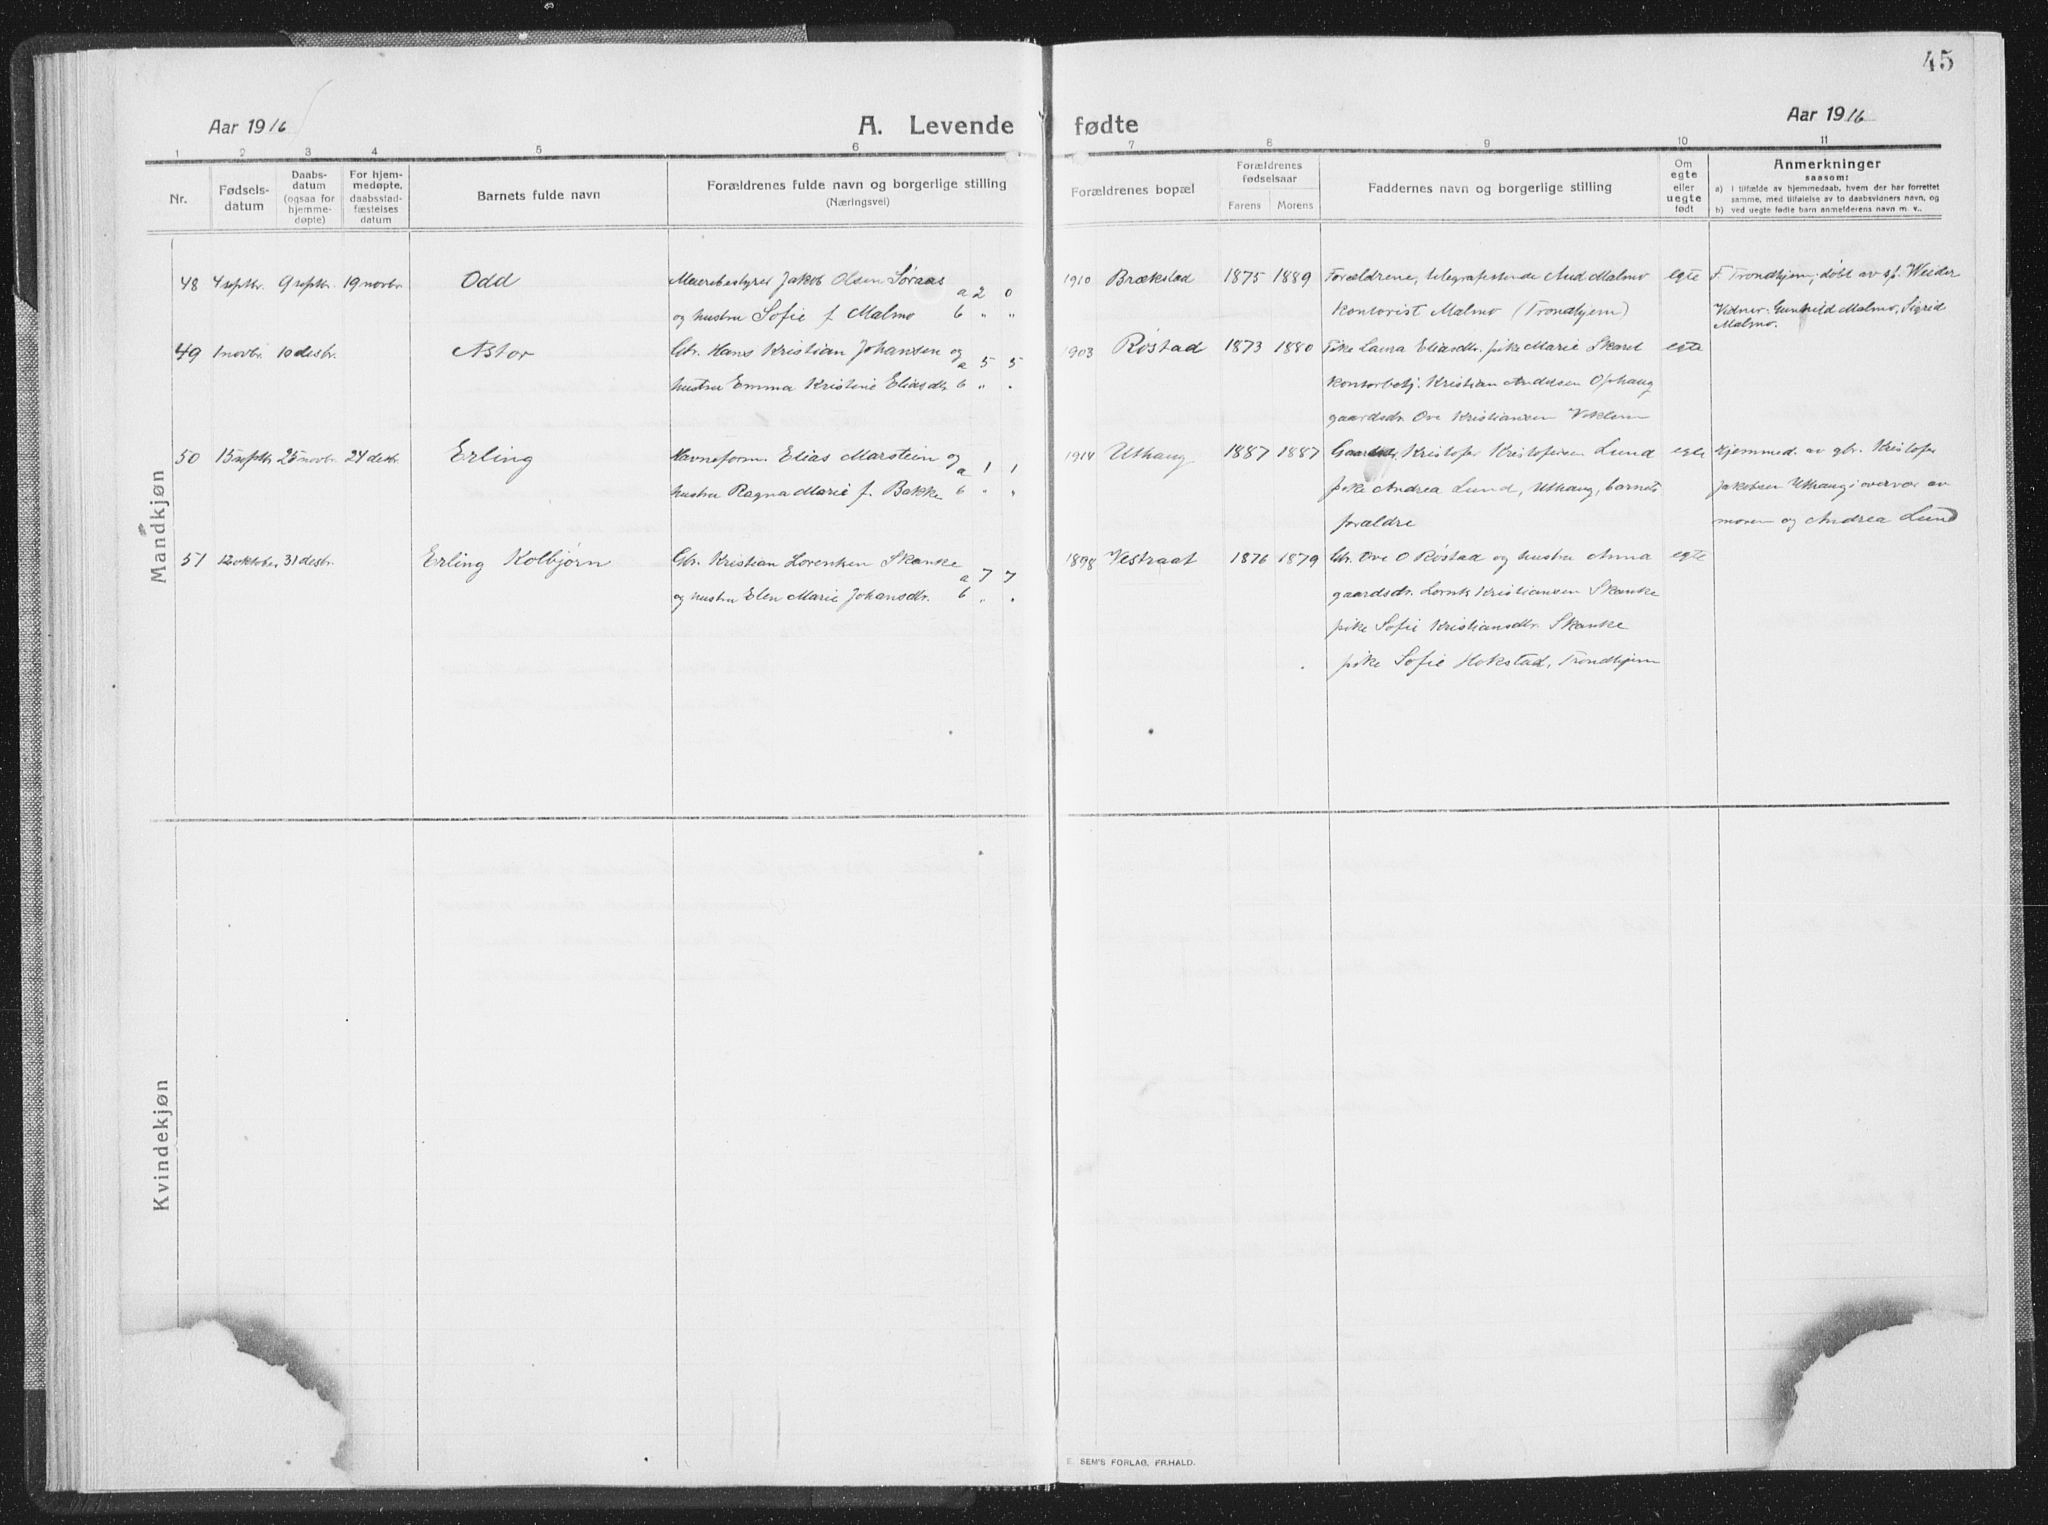 45
Aar 1916
A. Levende fødte
Aar 1916
1 2 3 4 5 6 7 8 9 10 11
Nr.
Fødsels-
datum
Daabs-
datum
(ogsaa for
hjemme-
døpte)
For hjem-
medøpte,
daabsstad-
fæstelses
datum
Barnets fulde navn
Forældrenes fulde navn og borgerlige stilling
(Næringsvei)
Forældrenes bopæl
Forældrenes
fødselsaar
Farens Morens
Faddernes navn og borgerlige stilling
Om
egte
eller
uegte
født
Anmerkninger
saasom:
a) I tilfælde av hjemmedaab, hvem der har forrettet
samme, med tilføielse av to daabsvidners navn, og
b) ved uegte fødte barn anmelderens navn m. v..
Mandkjøn
48 4 septbr. 9 septbr. 19 novbr. Odd
Meieribestyrer Jakob Olsen Søraas a 2 0
og hustru Sofie f. Malmo b " "
1910 Brækstad 1875 1889
Forældrene, telegrafistinde Aud Malmo
kontorist Malmo (Trondhjem)
egte
F. Trondhjem, døbt av sp. Weider
Vidner: Gunhild Malmo, Sigrid
Malmo.
49 1 novbr. 10 desbr. Astor
Gbr. Hans Kristian Johansen og a 5 5
hustru Emma Kristine Eliasdtr. b " "
1903 Røstad 1873 1880
Pike Laura Eliasdtr. pike Marie Skaret
kontorbetj. Kristian Andersen Ophaug
gaardsdr. Ove Kristiansen Veklem
egte
50 15 septbr. 25 novbr. 24 desbr. Erling
Havneform. Elias Marstein og a 1 1
hustru Ragna Marie f. Bakke b " "
1914 Uthaug 1887 1887
Kristofer Kristofersen Lund
pike Andrea Lund, Uthaug, barnets
forældre
egte
Hjemmed. av gbr. Kristofer
Jakobsen Uthaug i overvær av
moren og Andrea Lund
51 12 oktober 31 desbr. Erling Kolbjørn
Gbr. Kristian Lorentsen Skanke a 7 7
og hustru Elen Marie Johansdtr. b " "
1898 Vestraat 1876 1879
Gbr. Ove O Røstad og hustru Anna
gaardsdr. Lornts Kristiansen Skanke
pike Sofie Kristiansdtr. Skanke
pike Sofie Hokstad, Trondhjem
egte
Kvindekjøn
E. SEM'S FORLAG, FR.HALD.